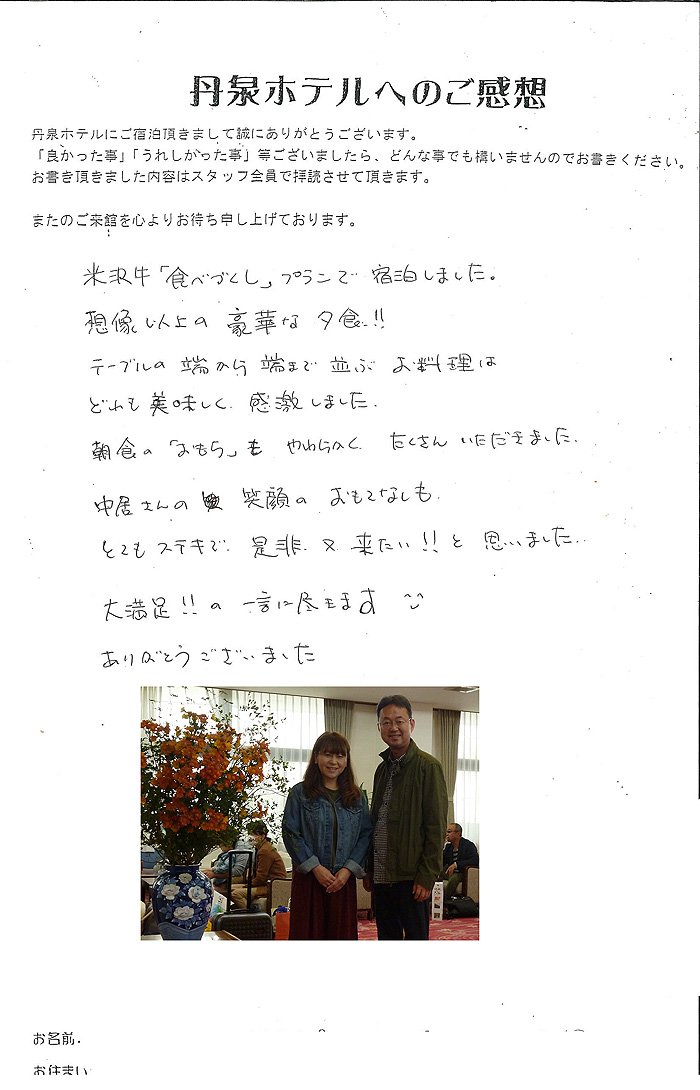 丹泉ホテルへのご感想
丹泉ホテルにご宿泊頂きまして誠にありがとうございます。
「良かった事」「うれしかった事」等ございましたら、どんな事でも構いませんのでお書きください。
お書き頂きました内容はスタッフ全員で拝読させて頂きます。
またのご来館を心よりお待ち申し上げております。
米沢牛「食べづくし」プランで 宿泊しました。
想像以上の 豪華な 夕食!!
テーブルの 端から 端まで 並ぶ お料理は
どれも 美味しく 感激しました.
朝食の「おもち」も やわらかく たくさん いただきました.
中居さんの 笑顔の おもてなしも
とても ステキで 是非 又 来たい!! と 思いました.
大満足!! の 一言に尽きます
ありがとうございました
お名前.
お住まい